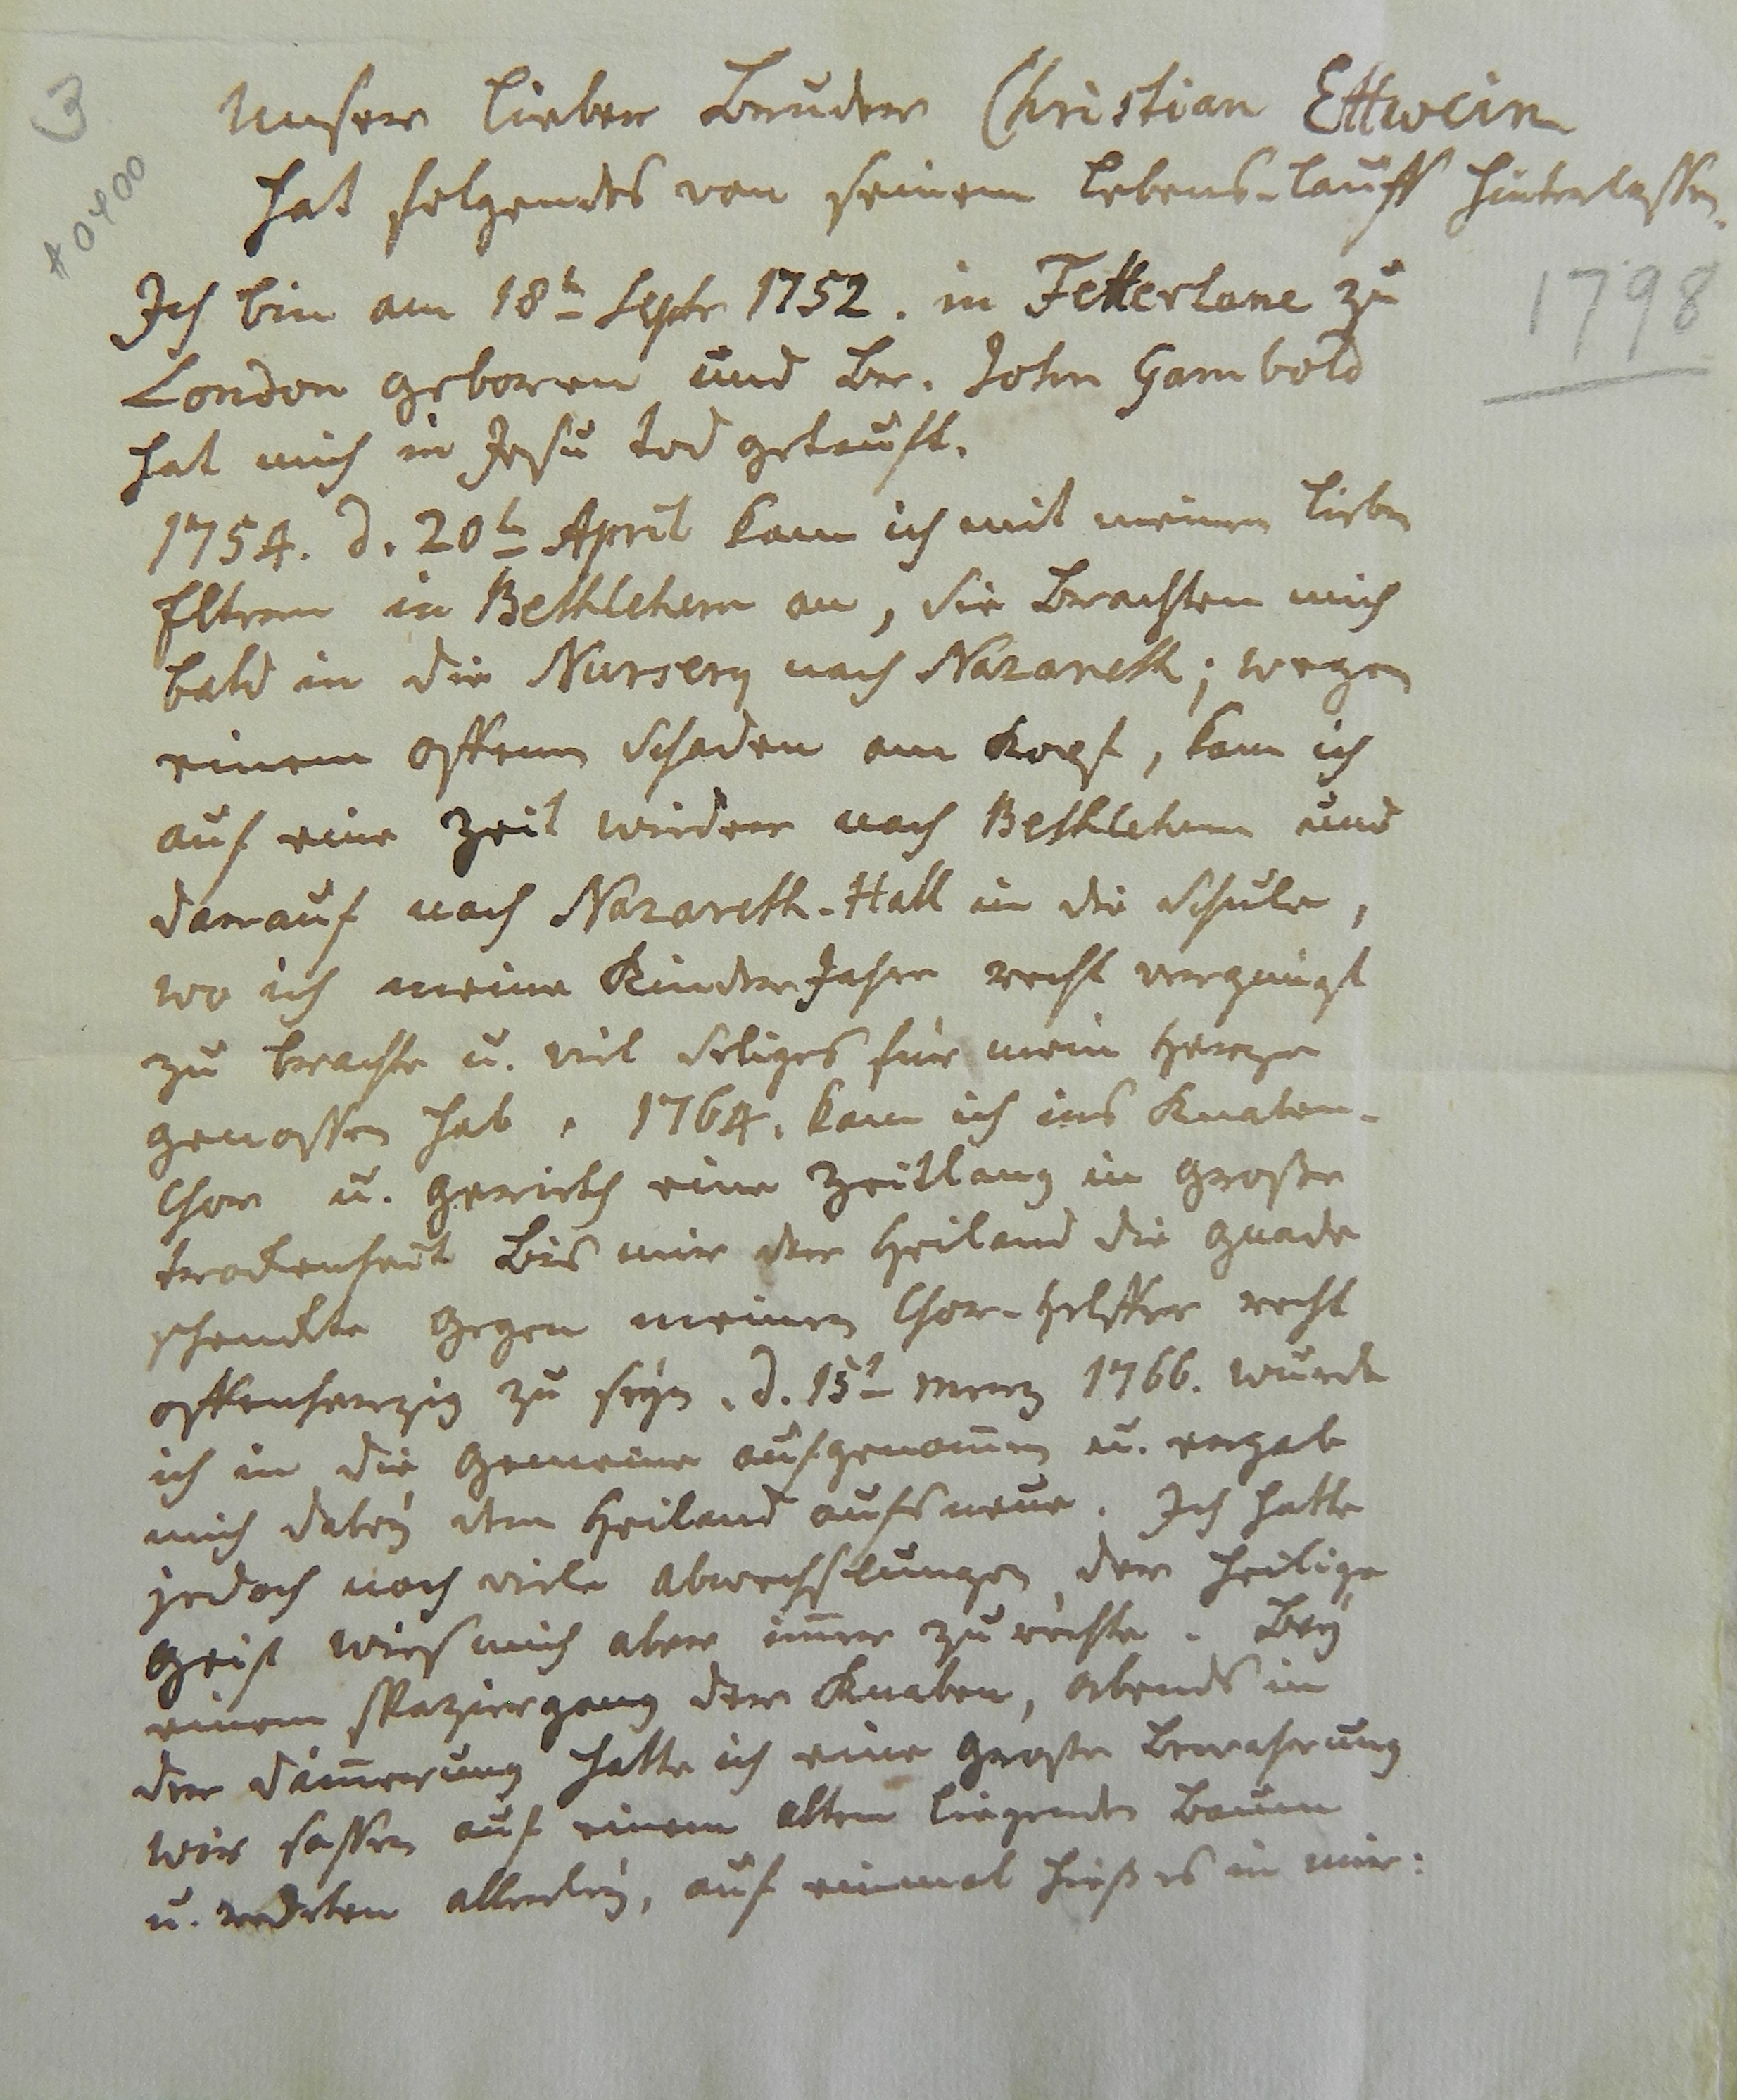 3
#0400
Unser lieber Bruder Christian Ettwein
hat folgendes von seinem Lebens-Lauff hinterlassen.
1798
Ich bin am 18t Septr 1752. in Fetterlane zu
London geboren und Br. John Gambold
hat mich in Jesu Tod getauft.
1754. d. 20t April kam ich mit meinen lieben
Eltern in Bethlehem an, Sie brachten mich
bald in die Nursery nach Nazareth; wegen
einem offenen Schaden am Kopf, kam ich
auf eine Zeit wieder nach Bethlehem und
darauf nach Nazareth-Hall in die Schule,
wo ich meine Kinder Jahre recht vergnügt
zu brachte u. viel Seliges für mein Herze
genossen hab. 1764. kam ich ins Knaben-
Chor u. gerieth eine Zeitlang in große
trockenheit bis mir der Heiland die Gnade
schenckte gegen meinen Chor-Helffer recht
offenherzig zu seyn. d. 15t Merz 1766. wurde
ich in die Gemeine aufgenom̄en u. ergab
mich dabey dem Heiland aufs neue. Ich hatte
jedoch noch viele abwechslungen, der heilige
Geist wies mich aber im̄er zu rechte. Bey
einem Spaziergang der Knaben, abends in
der däm̄erung hatte ich eine große Bewahrung
wir sassen auf einem alten liegenden Baum
u. redeten allerley, auf einmal hieß es in mir: